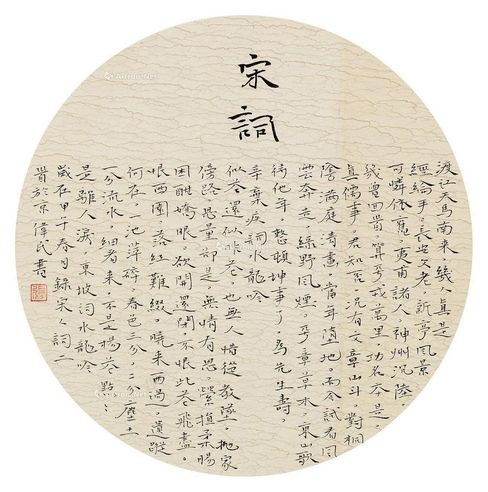 宋
詞
渡江天馬南来，幾人真是
經綸手，長安父老，新亭風景
可憐依舊，夷甫諸人，神州沉陸，
幾曾回首，算平戎萬里，功名本是，
真儒事，君知否，況有文章山斗，對桐
陰滿庭清晝，當年墮地，而今試看，風
雲奔走，綠野風煙，平章草木，東山歌
待他年，整頓坤事了，為先生壽。
辛棄疾詞水龍吟
似花還似非花，也無人惜從教墜，拋家
傍路，思量却是，無情有思，縈損柔腸
困酣嬌眼，欲開還閉，不恨此花飛盡，
恨西園，落紅難綴，曉来雨過，遺蹤
何在，一池萍碎，春色三分，二分塵土
一分流水，細看来，不是楊花，點點
是離人淚，東坡詞水龍吟
歲在甲午春日錄宋人詞二
首於京偉民書